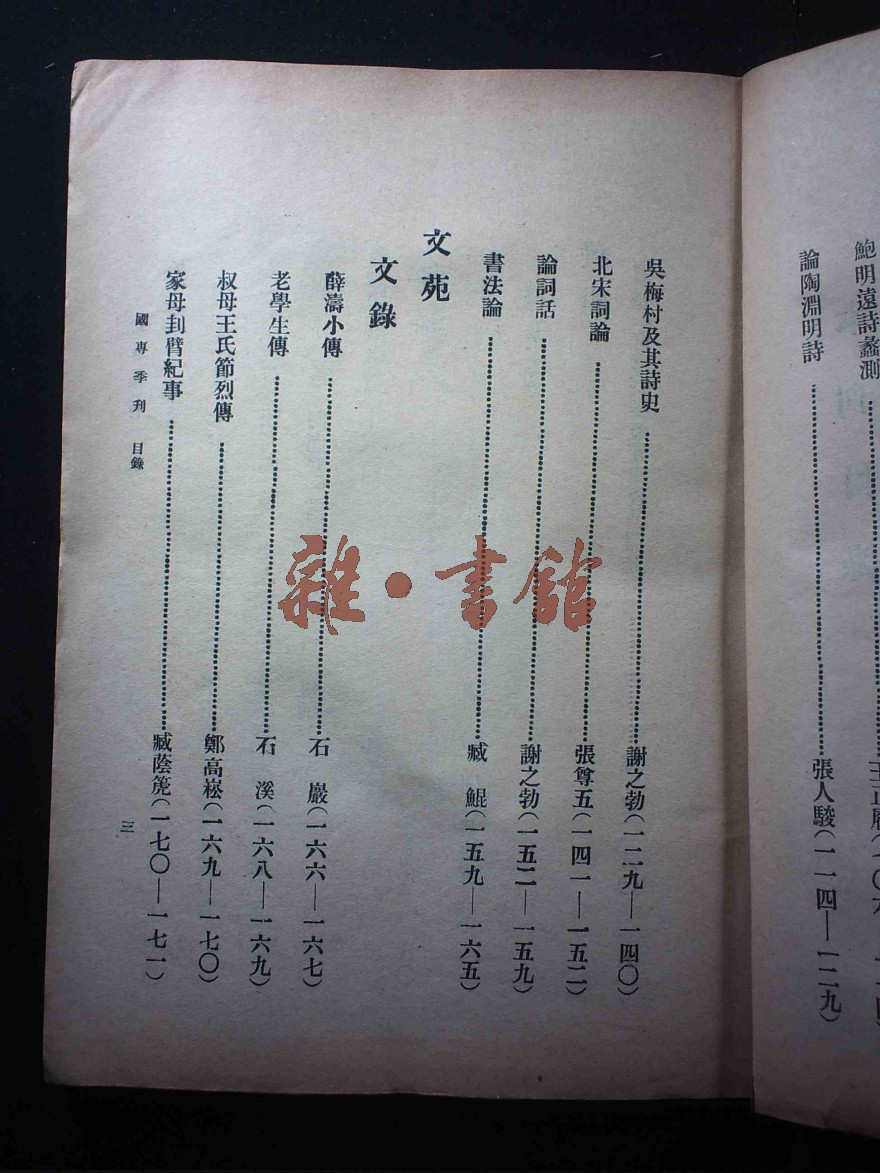 鮑明遠詩蠡測
論陶淵明詩……張人駿(一一四—一二九)
吳梅村及其詩史……謝之勃(一二九—一四〇)
北宋詞論……張尊五(一四一—一五二)
論詞話……謝之勃(一五二—一五九)
書法論……臧　鯤(一五九—一六五)
文苑
文錄
薛濤小傳……石　巖(一六六—一六七)
老學生傳……石　溪(一六八—一六九)
叔母王氏節烈傳……鄭高崧(一六九—一七〇)
家母刲臂紀事……臧蔭箎(一七〇—一七一)
國專季刊　目錄
三
雜·書館